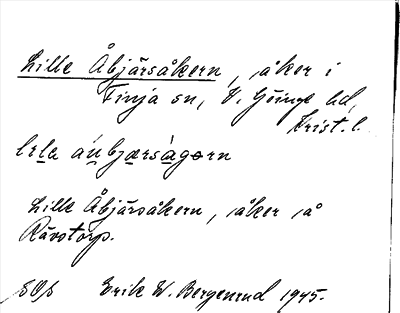 Lille Åbjärsåkern, åker i
Finja sn, V. Göinge hd,
Krist. l.
lɛla áu̯bjærsàgɔrn
Lille Åbjärsåkern, åker å
Rävstorp.
Erik W. Bergenrud 1945.